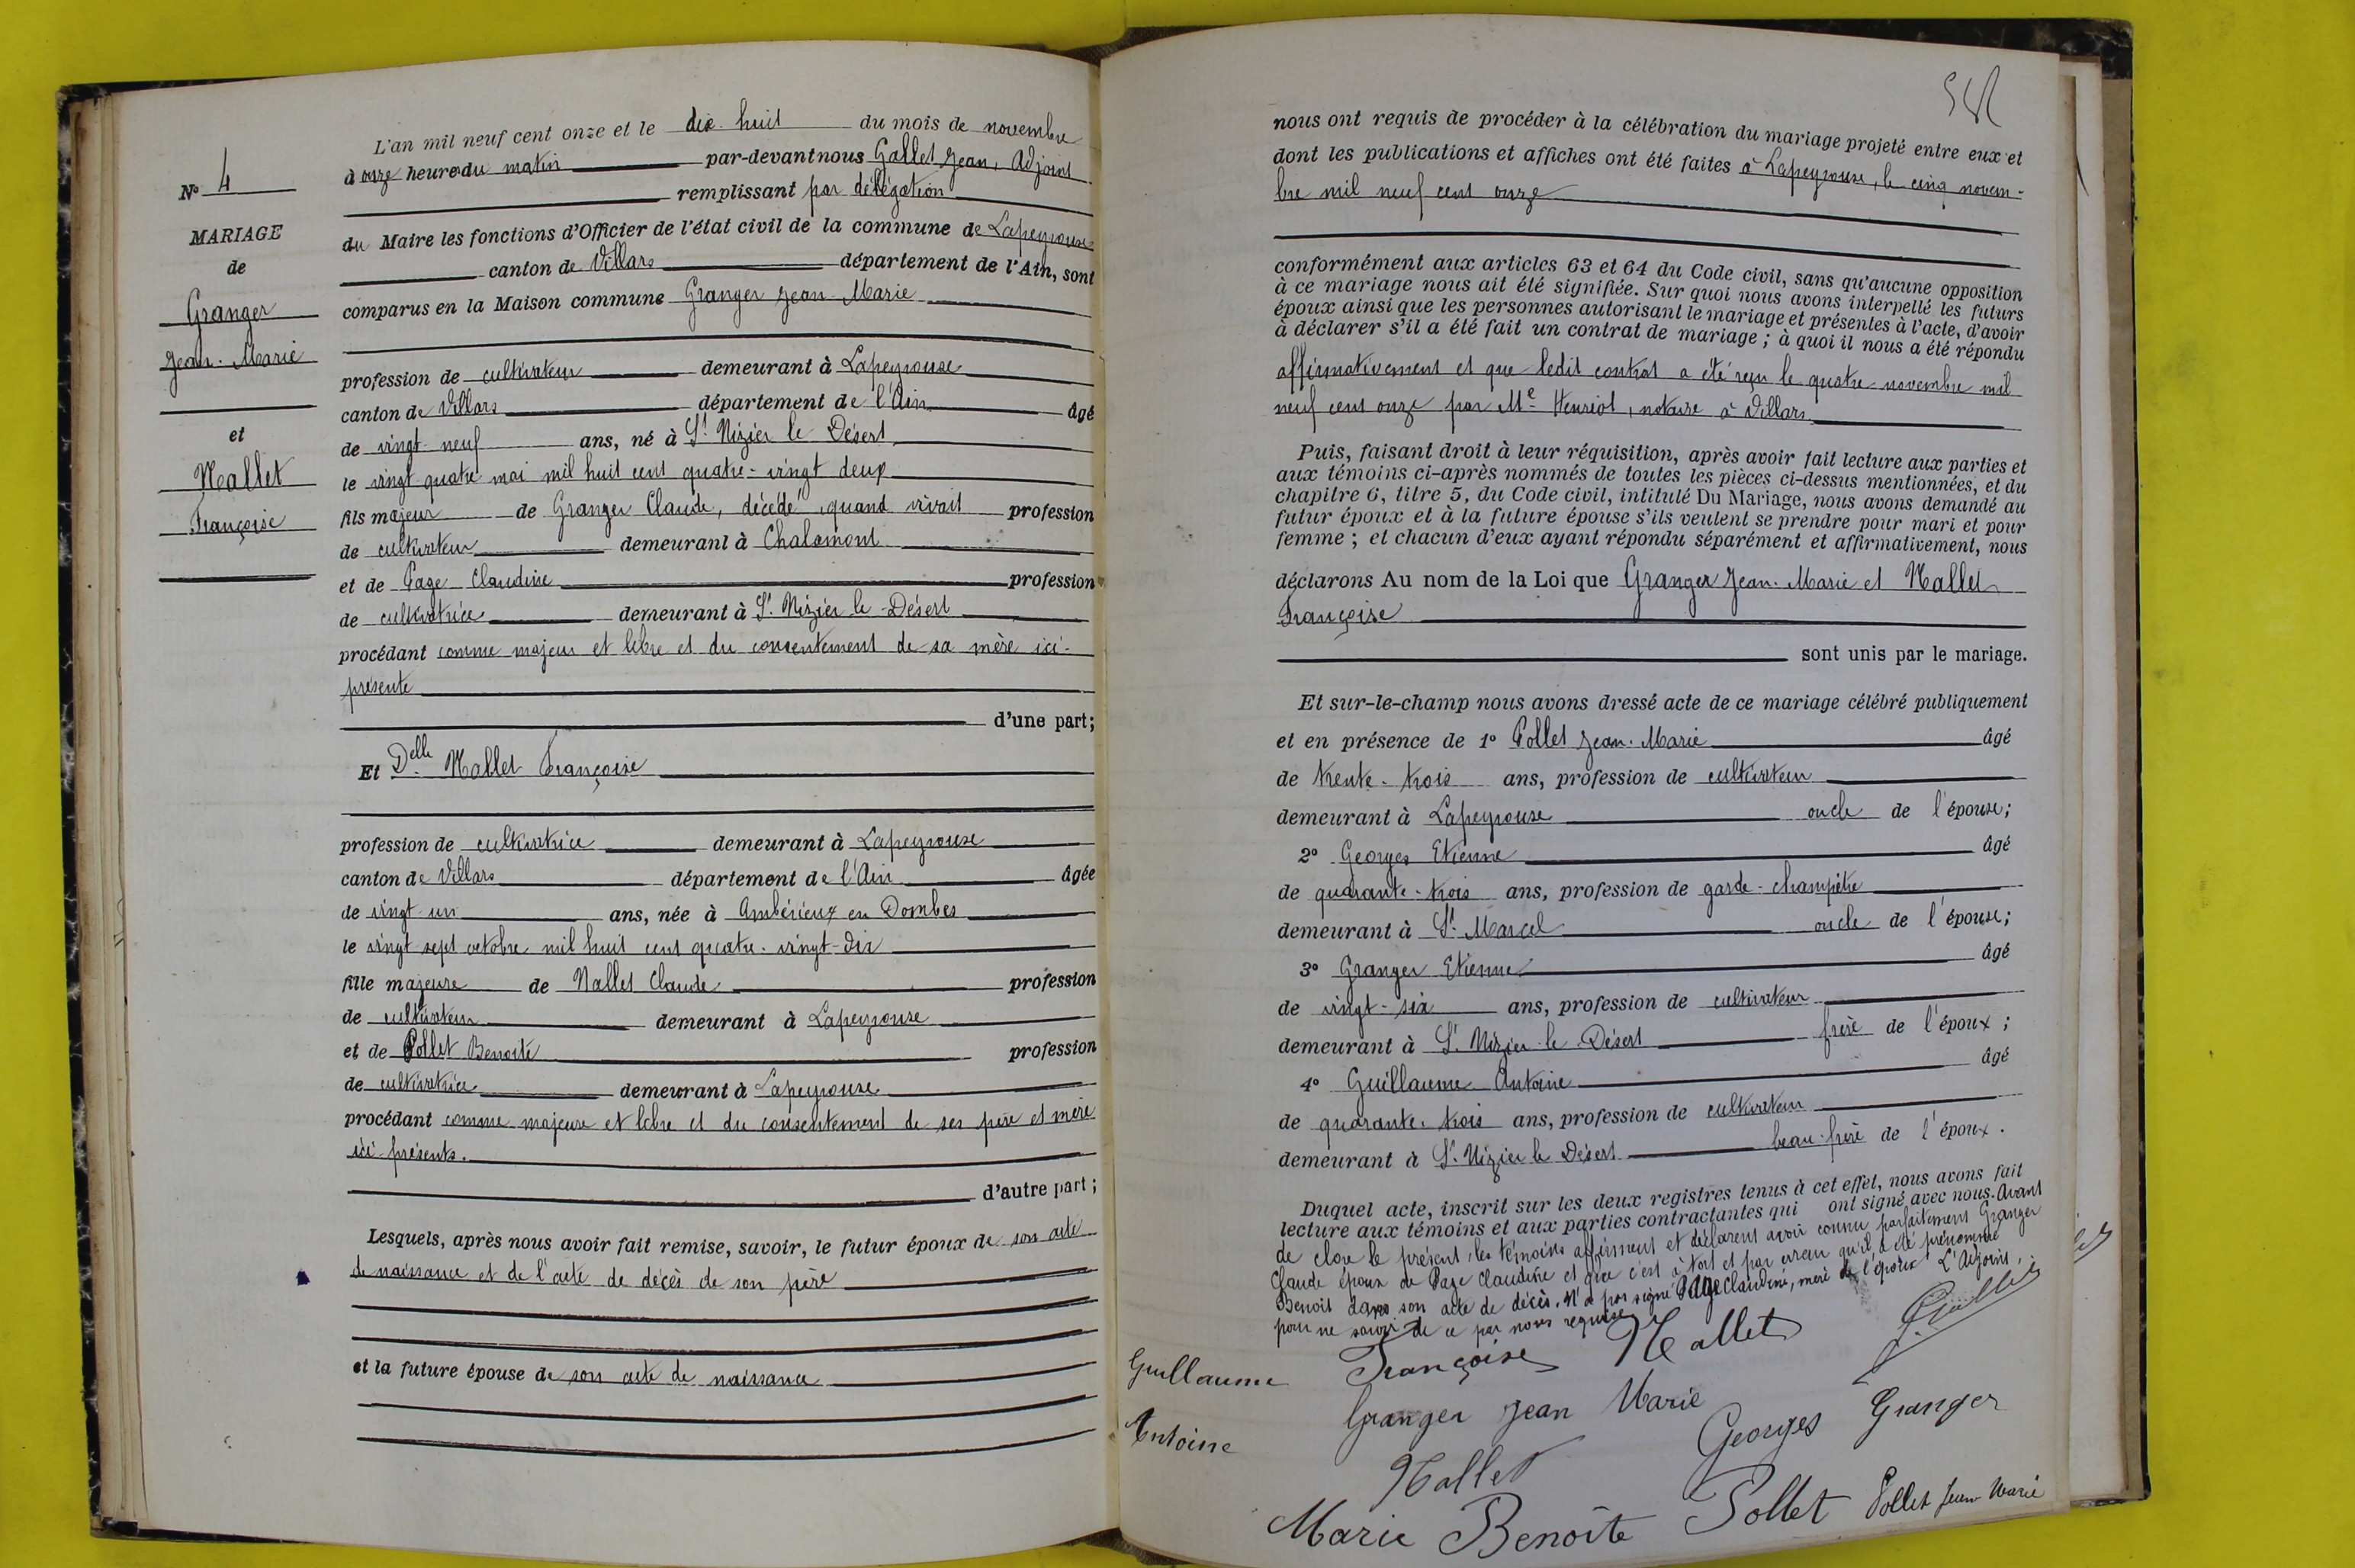 N° 4
MARIAGE
de
Granger
Jean-Marie
et
Nallet
Françoise
L'an mil neuf cent onze et le dix-huit du mois de novembre
à onze heures du matin par-devant nous Gallet Jean, Adjoint
remplissant par délégation
du Maire les fonctions d'Officier de l'état civil de la commune de Lapeyrouse
canton de Villars département de l'Ain, sont
comparus en la Maison commune Granger Jean-Marie
profession de cultivateur demeurant à Lapeyrouse
canton de Villars département de l'Ain âgé
de vingt-neuf ans, né à St Nizier le Désert
le vingt-quatre mai mil huit cent quatre-vingt deux
fils majeur de Granger Claude, décédé, quand vivait profession
de cultivateur demeurant à Chalamont
et de Page Claudine profession
de cultivatrice demeurant à St Nizier le Désert
procédant comme majeur et libre et du consentement de sa mère ici-
présente
d'une part;
Et Delle Nallet Françoise
profession de cultivatrice demeurant à Lapeyrouse
canton de Villars département de l'Ain âgée
de vingt-un ans, née à Ambérieux en Dombes
le vingt-sept octobre mil huit cent quatre-vingt-dix
fille majeure de Nallet Claude profession
de cultivateur demeurant à Lapeyrouse
et de Pollet Benoite profession
de cultivatrice demeurant à Lapeyrouse
procédant comme majeure et libre et du consentement de ses père et mère
ici présents.
d'autre part;
Lesquels, après nous avoir fait remise, savoir, le futur époux de son acte
de naissance et de l'acte de décès de son père
et la future épouse de son acte de naissance
nous ont requis de procéder à la célébration du mariage projeté entre eux et
dont les publications et affiches ont été faites à Lapeyrouse, le cinq novem-
bre mil neuf cent onze
conformément aux articles 63 et 64 du Code civil, sans qu'aucune opposition
à ce mariage nous ait été signifiée. Sur quoi nous avons interpellé les futurs
époux ainsi que les personnes autorisant le mariage et présentes à l'acte, d'avoir
à déclarer s'il a été fait un contrat de mariage; à quoi il nous a été répondu
affirmativement et que ledit contrat a été reçu le quatre novembre mil
neuf cent onze par Me Henriot, notaire à Villars.
Puis, faisant droit à leur réquisition, après avoir fait lecture aux parties et
aux témoins ci-après nommés de toutes les pièces ci-dessus mentionnées, et du
chapitre 6, titre 5, du Code civil, intitulé Du Mariage, nous avons demandé au
futur époux et à la future épouse s'ils veulent se prendre pour mari et pour
femme; et chacun d'eux ayant répondu séparément et affirmativement, nous
déclarons Au nom de la Loi que Granger Jean-Marie et Nallet
Françoise
sont unis par le mariage.
Et sur-le-champ nous avons dressé acte de ce mariage célébré publiquement
et en présence de 1° Pollet Jean-Marie âgé
de trente-trois ans, profession de cultivateur
demeurant à Lapeyrouse oncle de l'épouse;
2° Georges Etienne âgé
de quarante-trois ans, profession de garde-champêtre
demeurant à St Marcel oncle de l'épouse;
3° Granger Etienne âgé
de vingt-six ans, profession de cultivateur
demeurant à St Nizier le Désert frère de l'époux;
4° Guillaume Antoine âgé
de quarante-trois ans, profession de cultivateur
demeurant à St Nizier le Désert beau-frère de l'époux.
Duquel acte, inscrit sur les deux registres tenus à cet effet, nous avons fait
lecture aux témoins et aux parties contractantes qui ont signé avec nous. Avant
de clore le présent, les témoins affirment et déclarent avoir connu parfaitement Granger
Claude époux de Page Claudine et que c'est à tort et par erreur qu'il a été prénommé
Benoit dans son acte de décès. N'a pas signé Page Claudine, mère de l'époux L'Adjoint,
pour ne savoir de ce par nous requise
Françoise Nallet
Guillaume
Antoine
Granger Jean Marie
Georges Granger
Nallet
Marie Benoîte Pollet Pollet Jean-Marie